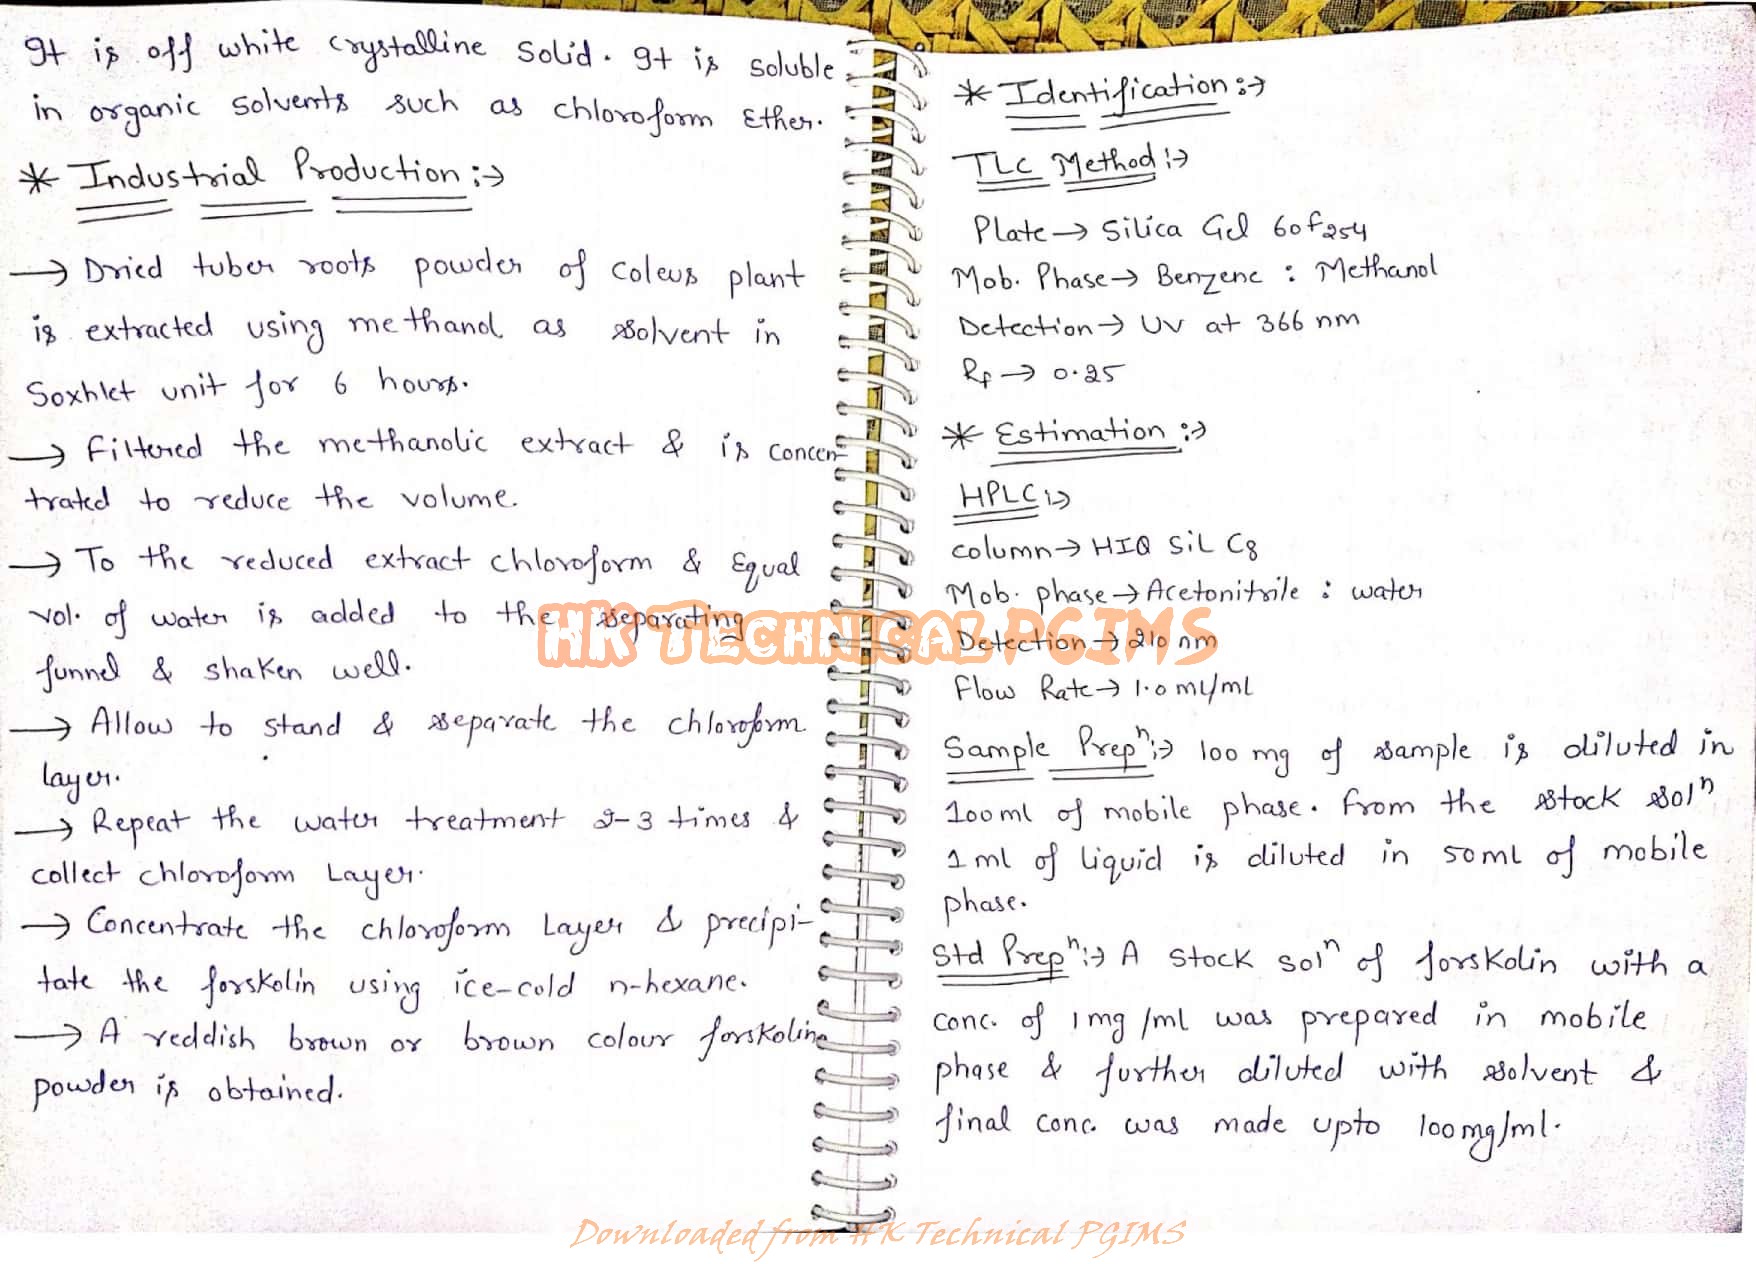 It is off white crystalline solid. It is soluble
in organic solvents such as chloroform Ether.
* Industrial Production :→
→ Dried tuber roots powder of Coleus plant
is extracted using methanol as solvent in
Soxhlet unit for 6 hours.
→ Filtered the methanolic extract & is concen-
trated to reduce the volume.
→ To the reduced extract chloroform & Equal
vol. of water is added to the separating
funnel & shaken well.
→ Allow to stand & separate the chloroform
layer.
→ Repeat the water treatment 2-3 times &
collect chloroform Layer.
→ Concentrate the chloroform Layer & precipi-
tate the forskolin using ice-cold n-hexane.
→ A reddish brown or brown colour forskoline
powder is obtained.
* Identification :→
TLC Method :→
Plate → Silica Gel 60F254
Mob. Phase → Benzene : Methanol
Detection → UV at 366 nm
Rf → 0.25
* Estimation :→
HPLC :→
Column → HIQ SiL C8
Mob. phase → Acetonitrile : water
Detection → 210 nm
Flow Rate → 1.0 ml/ml
Sample Prepⁿ :→ 100 mg of sample is diluted in
100ml of mobile phase. From the stock solⁿ
1 ml of liquid is diluted in 50ml of mobile
phase.
Std Prepⁿ :→ A stock solⁿ of forskolin with a
conc. of 1mg/ml was prepared in mobile
phase & further diluted with solvent &
final conc. was made upto 100mg/ml.
HK Technical PGIMS
Downloaded from HK Technical PGIMS